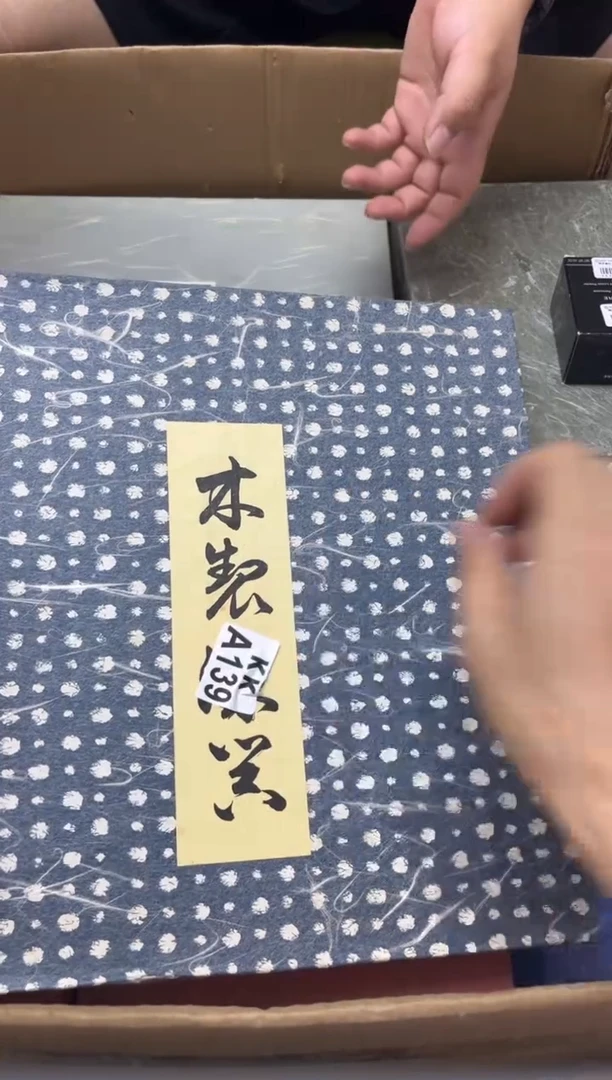 木製 器
KK
A139